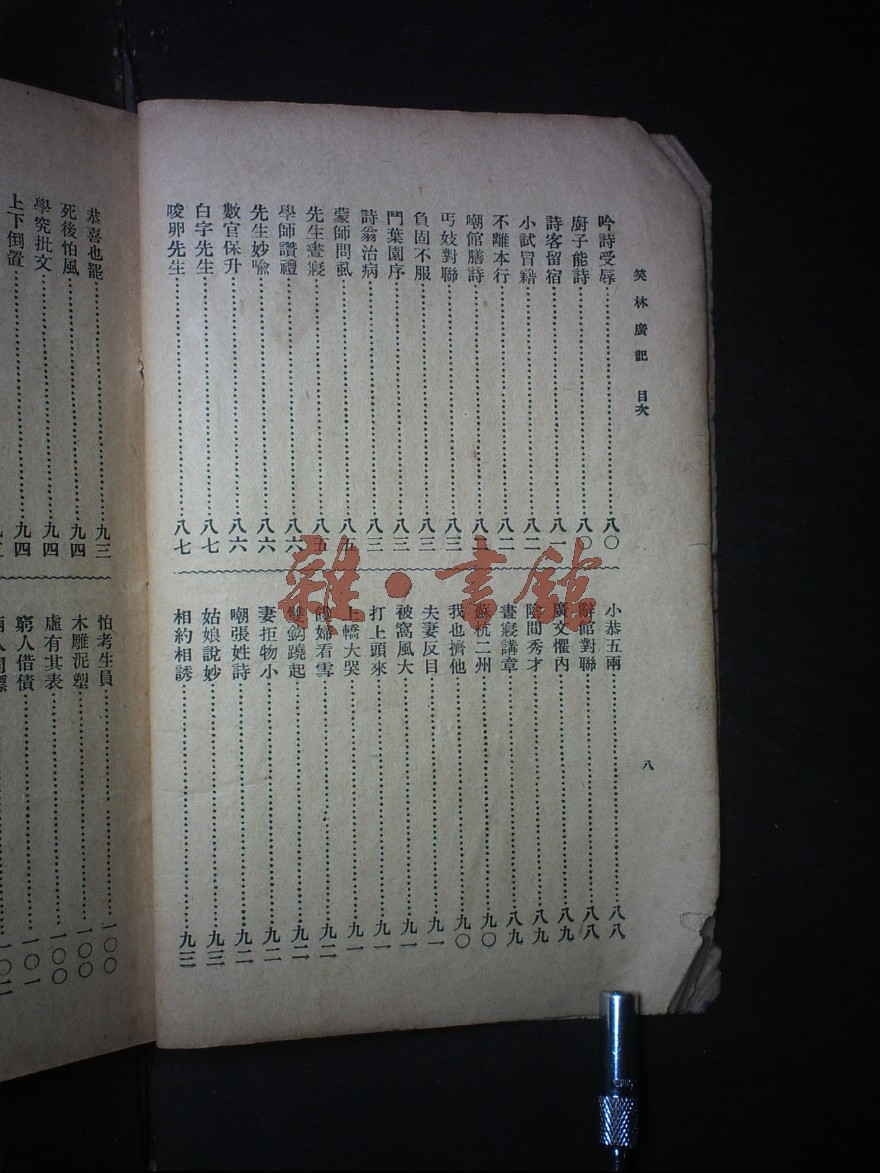 笑林廣記 目次
吟詩受辱 八〇
厨子能詩 八〇
詩客留宿 八一
小試冒籍 八二
不離本行 八二
嘲館膳詩
丐妓對聯 八三
負固不服 八三
鬥葉園序 八三
詩翁治病 八三
蒙師問虱 八五
先生晝寢 八五
學師讚禮 八六
先生妙喩 八六
數官保升 八六
白字先生 八七
唆卵先生 八七
小恭五兩 八八
辭館對聯 八八
廣文懼內 八九
陰間秀才 八九
晝寢講章 八九
蘇杭二州 九〇
我也擠他 九〇
夫妻反目 九一
被窩風大 九一
打上頭來 九一
上轎大哭 九一
餿婦看雪 九二
雙鈎蹺起 九二
妻拒物小 九二
嘲張姓詩 九二
姑娘說妙 九三
相約相誘 九三
八
恭喜也罷 九三
死後怕風 九四
學究批文 九四
上下倒置 九四
怕考生員 一〇〇
木雕泥塑 一〇〇
虛有其表 一〇〇
窮人借債 一〇一
一〇二
雜·書館